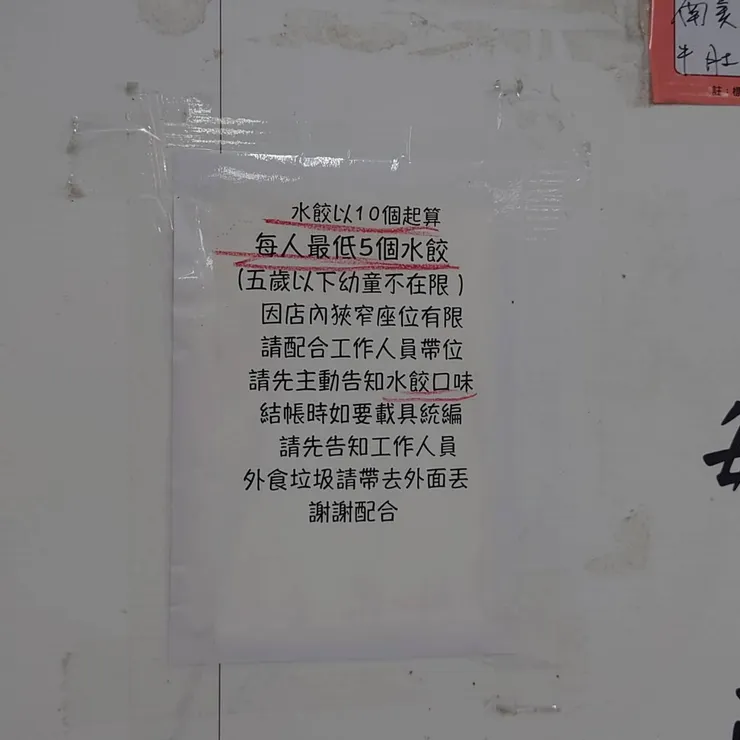 水餃以10個起算
每人最低5個水餃
(五歲以下幼童不在限)
因店內狹窄座位有限
請配合工作人員帶位
請先主動告知水餃口味
結帳時如要載具統編
請先告知工作人員
外食垃圾請帶去外面丟
謝謝配合
牛肚
註: